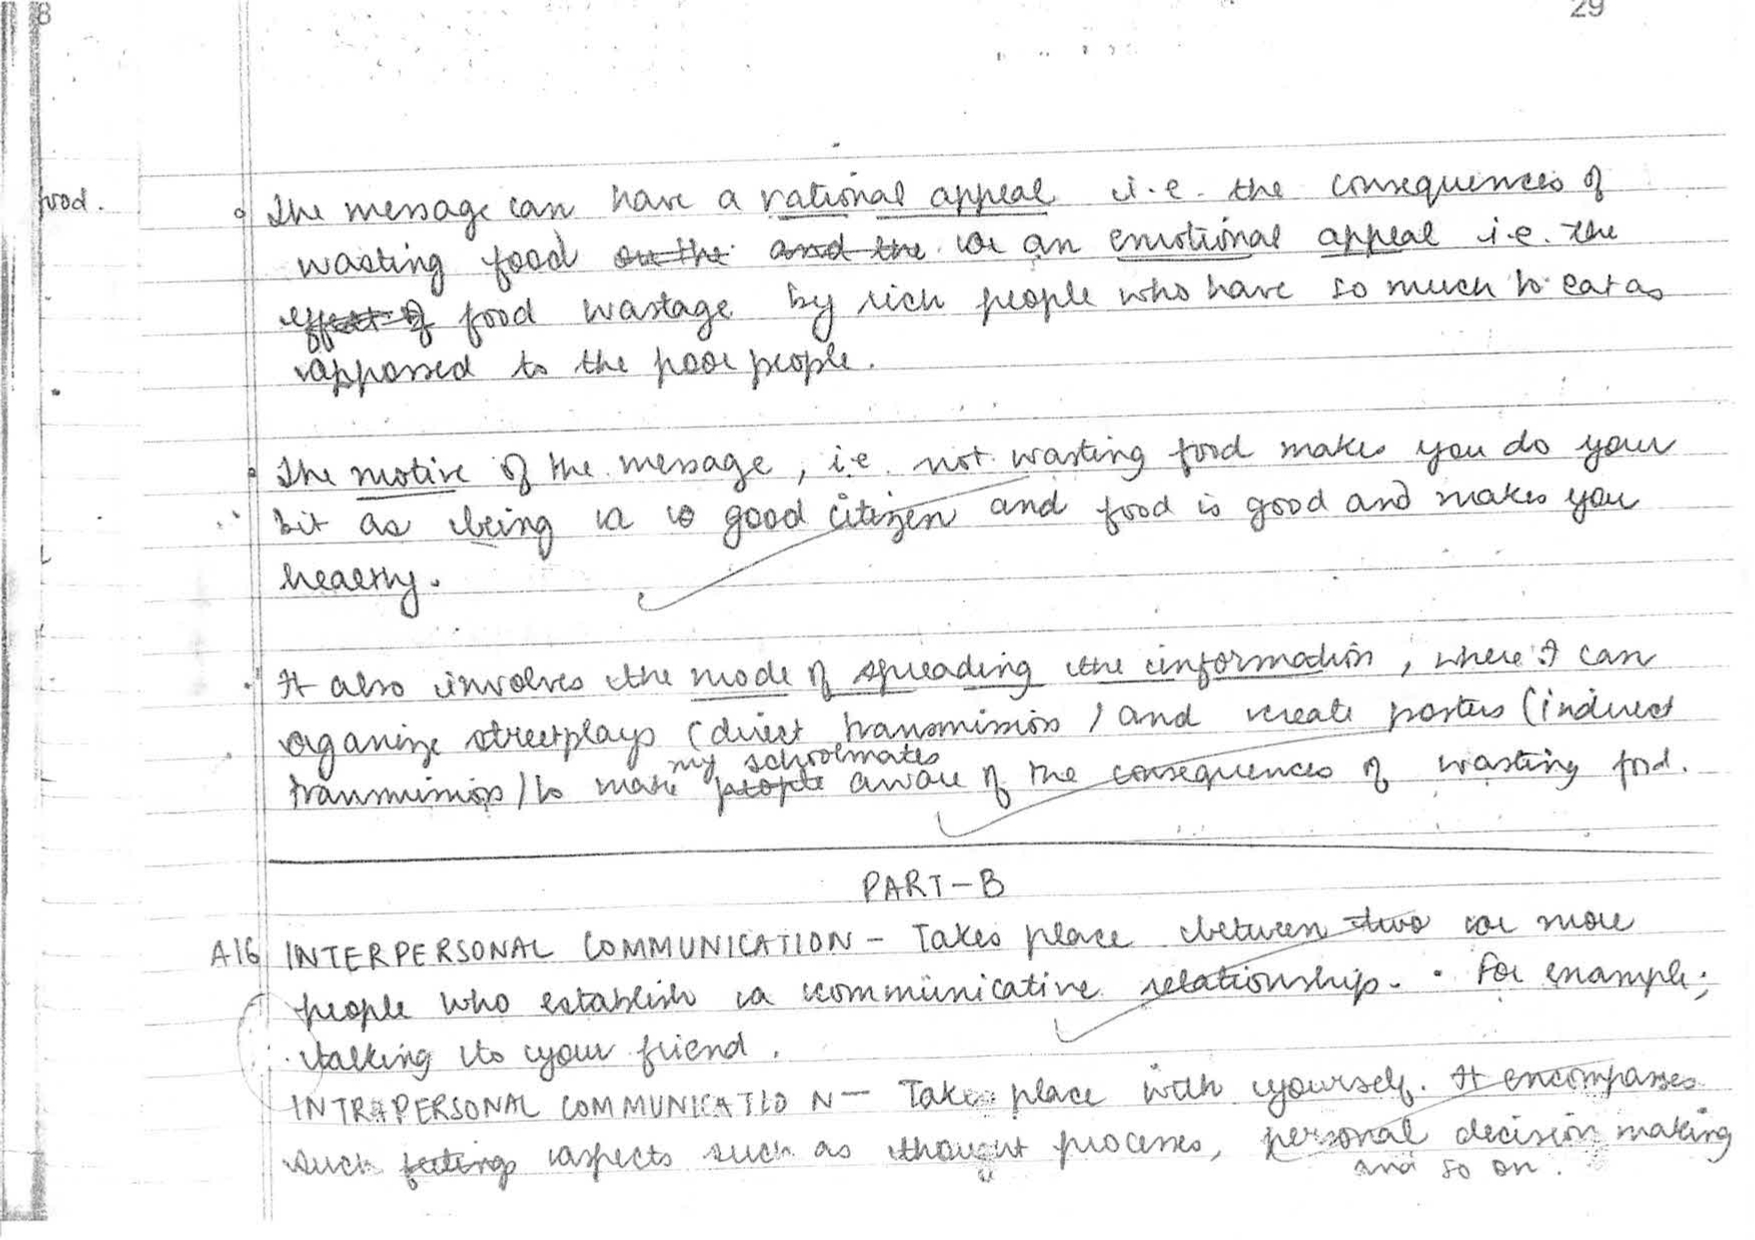 8
29
food.
The message can have a rational appeal i.e. the consequences of
wasting food on the and the or an emotional appeal i.e. the
effect of food wastage by rich people who have so much to eat as
apposed to the poor people.
The motive of the message, i.e. not wasting food makes you do your
bit as being a good citizen and food is good and makes you
healthy.
It also involves the mode of spreading the information, where I can
organize streetplays (direct transmission) and create posters (indirect
my schoolmates
transmission) to make people aware of the consequences of wasting food.
PART-B
A16 INTERPERSONAL COMMUNICATION - Takes place between two or more
people who establish a communicative relationship. For example;
talking to your friend.
INTRAPERSONAL COMMUNICATION - Takes place with yourself. It encompasses
such feelings aspects such as thought processes, personal decision making
and so on.